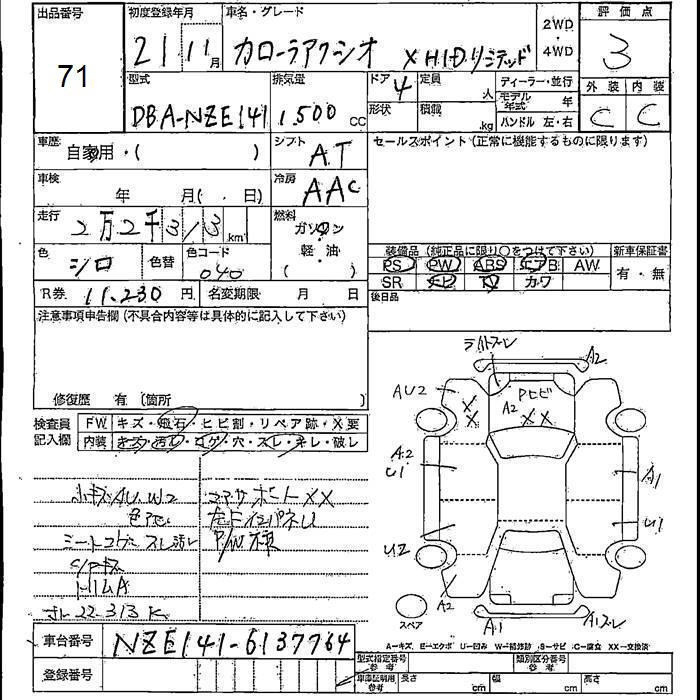 出品番号 初度登録年月 車名・グレード 2WD・4WD 評価点
71 21 11月 カローラアクシオ X HIDリミテッド 3
外装 内装
C C
型式 排気量 ドア 定員 ディーラー・並行
DBA-NZE141 1,500 CC 4 人 モデル年式 年
形状 積載 .kg ハンドル 左・右
車歴 自家用・( ) シフト AT セールスポイント(正常に機能するものに限ります)
車検 年 月( 日) 冷房 AAC
走行 2万2千313 km 燃料 ガソリン
軽・油
( )
色 シロ 色替 色コード 040
装備品(純正品に限り○をつけて下さい) 新車保証書
PS PW ABS エアB AW 有・無
SR ナビ TV カワ
R券 11,230 円 名変期限 月 日 後日品
注意事項申告欄(不具合内容等は具体的に記入して下さい)
修復歴 有 (箇所 )
検査員記入欄 FW キズ・飛石・ヒビ割・リペア跡・X要
内装 キズ・汚れ・コゲ・穴・スレ・キレ・破レ
小キズ・AU.W2
色アセ
コアサポートXX
P/W様
シートコゲ スレ 汚レ
22.313K
A2
AU2
Pヒビ
A2
X X
XX
A2
U1
A1
U1
U2
A2
A1
スペア
A-キズ、E-エクボ U-凹み W-補修跡 S-サビ C-腐食 XX-交換済
車台番号 NZE141-6137764
登録番号
型式指定番号 参考 類別区分番号 参考
車庫証明用 参考 長さ cm 幅 cm 高さ cm